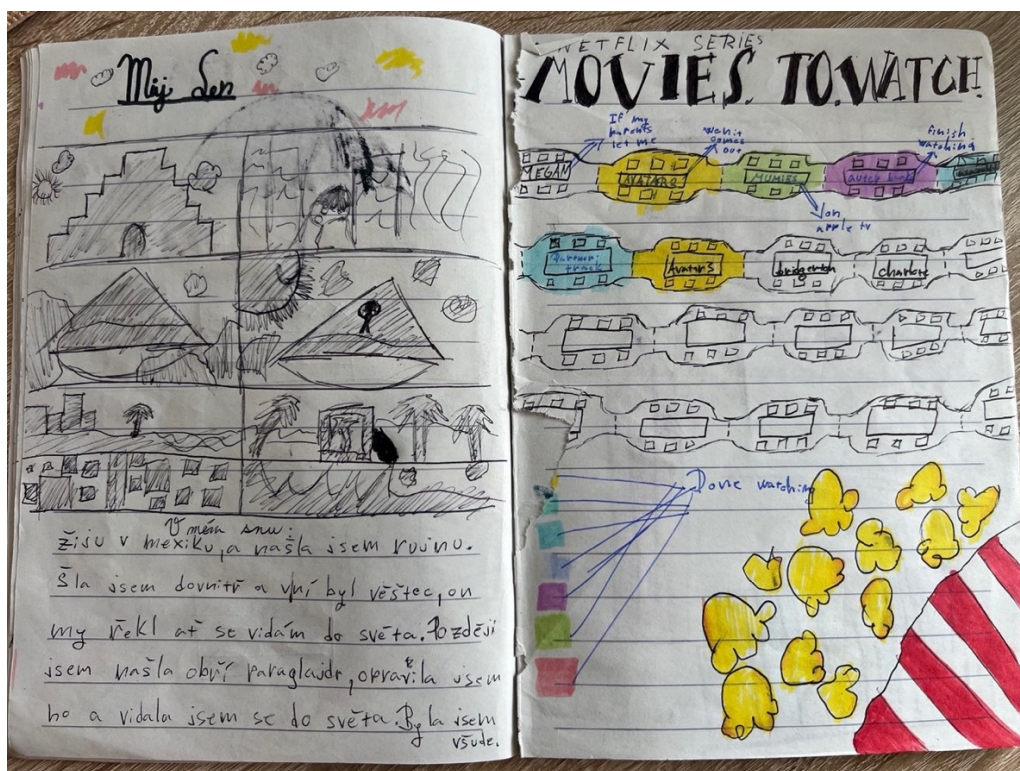 Můj Sen
V mém snu:
žiju v mexiku, a našla jsem ruinu.
Šla jsem dovnitř a vní byl věštec, on
my řekl ať se vidám do světa. Později
jsem našla obří paraglajdr, opravila jsem
ho a vidala jsem se do světa. Byla jsem
všude.
NETFLIX SERIES
MOVIES TO WATCH
If my
parents
let me
when it
comes
out
finish
watching
MEGAN
AVATAR
MUMIES
on
apple tv
Partner
track
Avatar 3
bridgerton
charlote
Done watching